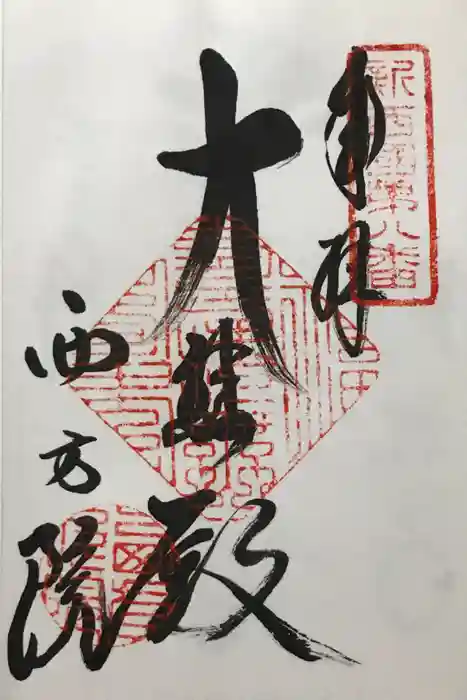 奉拝
新西国第八番
大悲殿
西方院